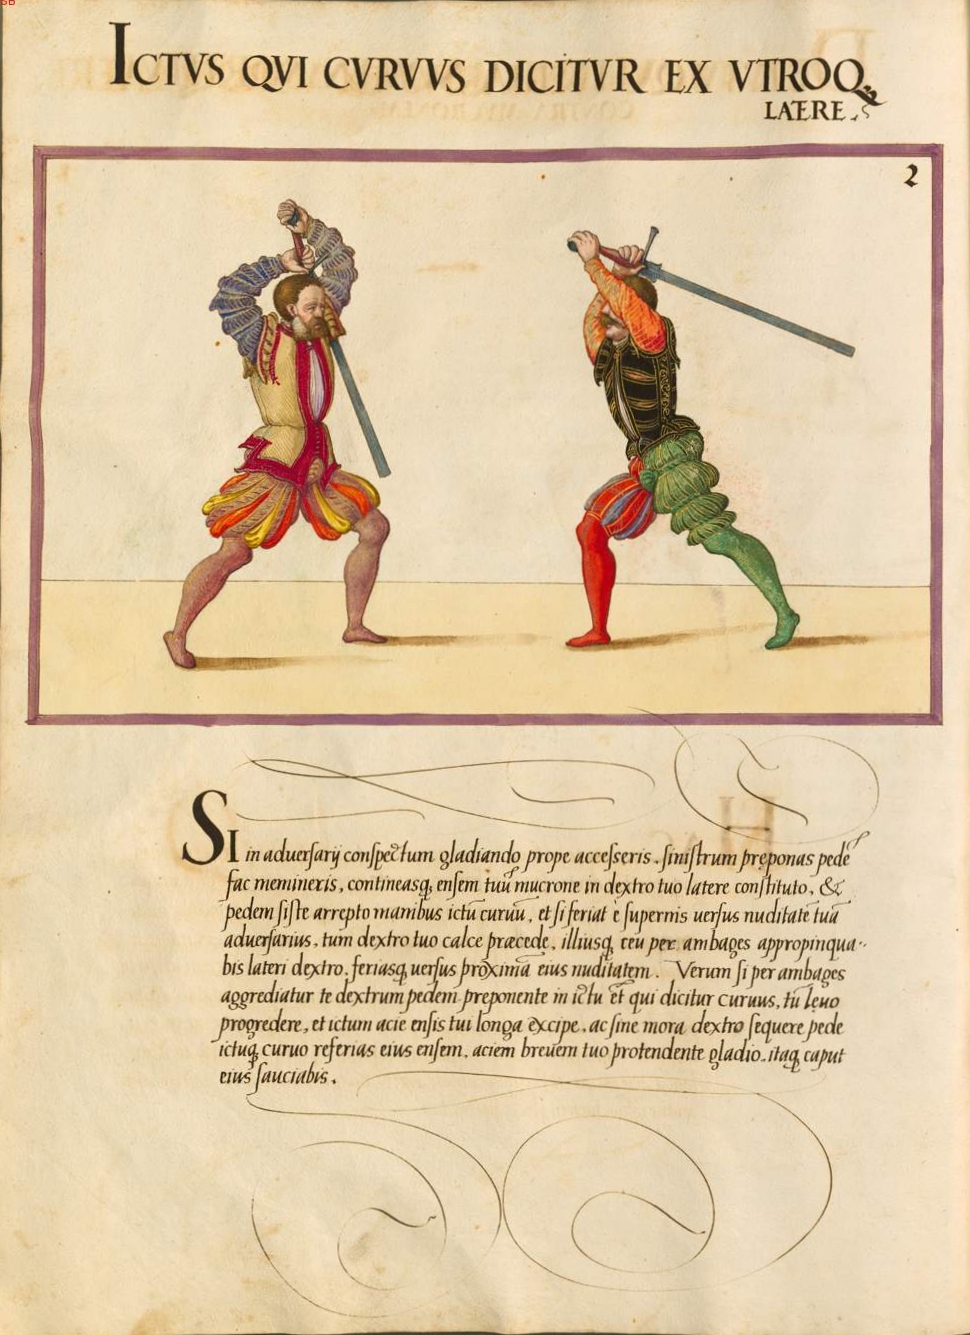 ICTVS QVI CVRVVS DICITVR EX VTROQ
LATERE.
2
SI in aduersarij conspectum gladiando prope accesseris, sinistrum preponas pedē
fac memineris, contineasq; ensem tuū mucrone in dextro tuo latere constituto, &
pedem siste arrepto manibus ictū curuū, et si feriat è supernis uersus nuditatē tuā
aduersarius, tum dextro tuo calce præcede, illiusq; ceu per ambages appropinqua-
bis lateri dextro, feriasq; uersus proximā eius nuditatem. Verum si per ambages
aggrediatur te dextrum pedem preponente in ictu et qui dicitur curuus, tū leuo
progredere, et ictum acie ensis tui longa excipe, ac sine mora dextro sequere pede
ictuq; curuo referias eius ensem, aciem breuem tuo protendente gladio, itaq; caput
eius sauciabis.